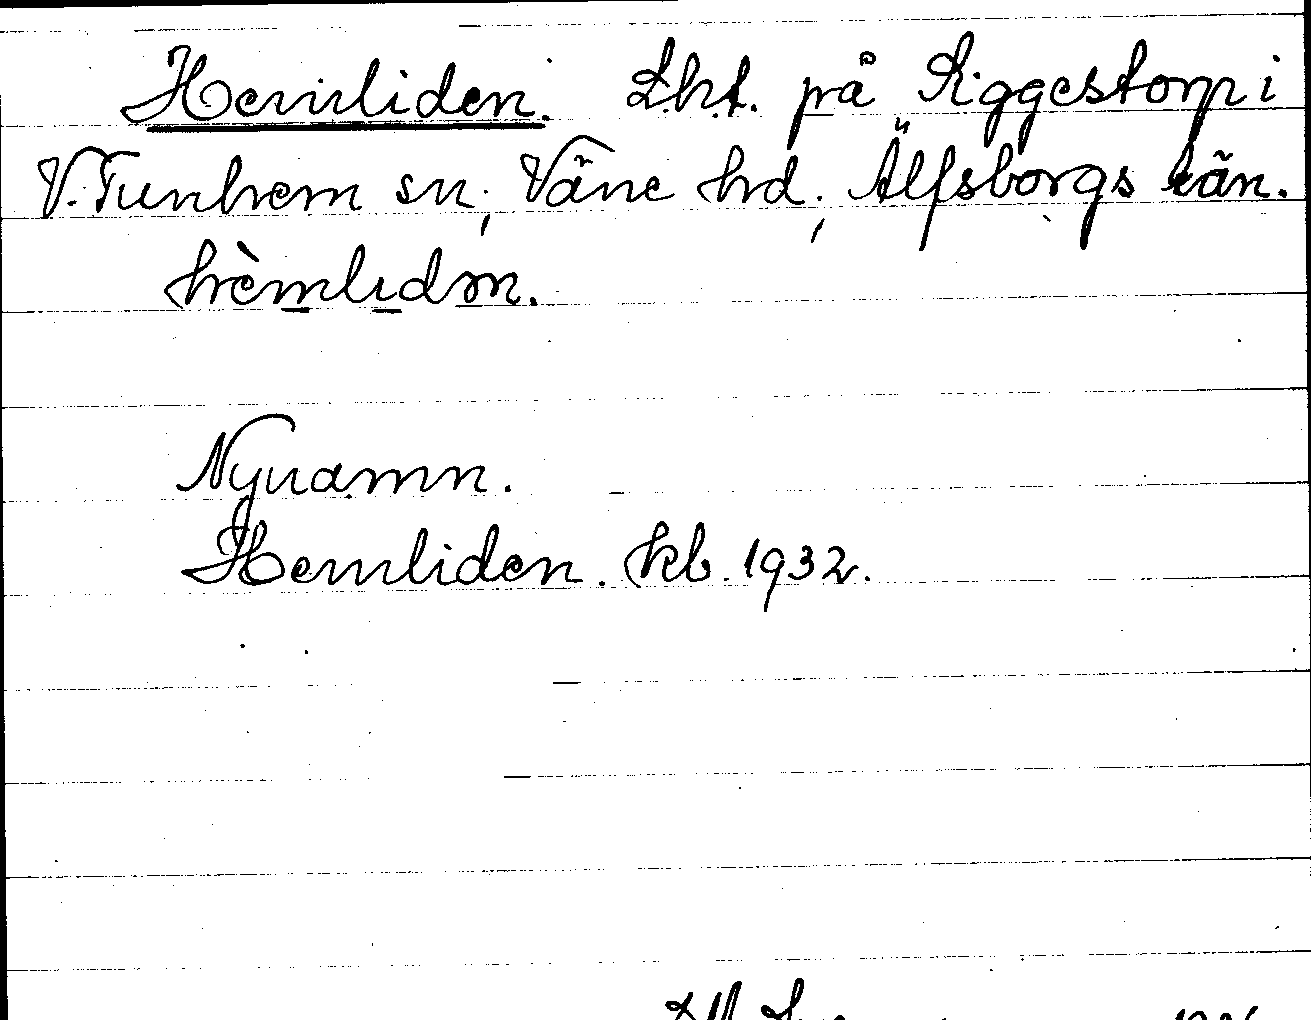 Hemliden. Lht. på Riggestorp i
V. Tunhem sn, Väne hd, Älfsborgs län.
hèmlidn.
Nynamn.
Hemliden. kb. 1932.